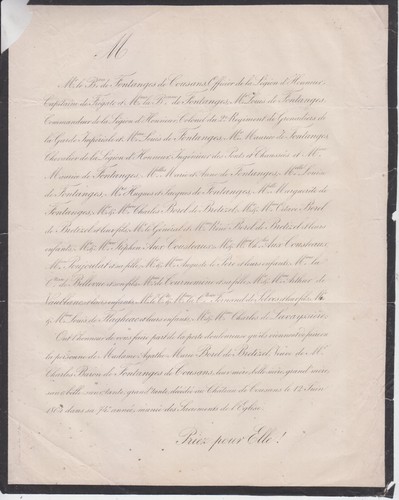 M
M. le B.on de Fontanges de Cousans, Officier de la Légion d'Honneur,
Capitaine de Frégate et M.me la B.onne de Fontanges, M. Louis de Fontanges,
Commandeur de la Légion d'Honneur, Colonel du 2.e Régiment de Grenadiers de
la Garde Impériale et M.me Louis de Fontanges, M. Maurice de Fontanges,
Chevalier de la Légion d'Honneur, Ingénieur des Ponts et Chaussées et M.me
Maurice de Fontanges, M.elles Marie et Anne de Fontanges, M.elle Louise
de Fontanges, M.rs Hugues et Jacques de Fontanges, M.elle Marguerite de
Fontanges, M. et M.me Charles Borel de Bretizel, M. et M.me Borel
de Bretizel et leurs fils, M. le Général et M.me Borel de Bretizel et leurs
enfants, M. et M.me Stéphen Aux Cousteaux, M. et M.me Aux Cousteaux,
M.me et sa fille, M. et M.me Auguste le Père et leurs enfants, M.me la
C.tesse de Bellevue et ses fils, M. de Cournemine et sa fille, M. et M.me Arthur de
et leurs enfants, M. le C.te et M.me la C.tesse de et leurs fils, M.
& M.me Louis de et leurs enfants, M. et M.me Charles de
Ont l'honneur de vous faire part de la perte douloureuse qu'ils viennent de faire en
la personne de Madame Agathe Marie Borel de Bretizel, Veuve de M.
Charles Baron de Fontanges de Cousans, leur mère, belle-mère, grand'mère,
sœur, belle-sœur, tante, grand'tante, décédée au Château de Cousans le 12 Juin
dans sa 74.e année, munie des Sacrements de l'Église.
Priez pour Elle!